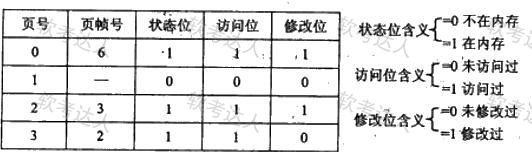 页号 页帧号 状态位 访问位 修改位
0 6 1 1 1
1 — 0 0 0
2 3 1 1 1
3 2 1 1 0
状态位含义 =0 不在内存
=1 在内存
访问位含义 =0 未访问过
=1 访问过
修改位含义 =0 未修改过
=1 修改过
软考达人